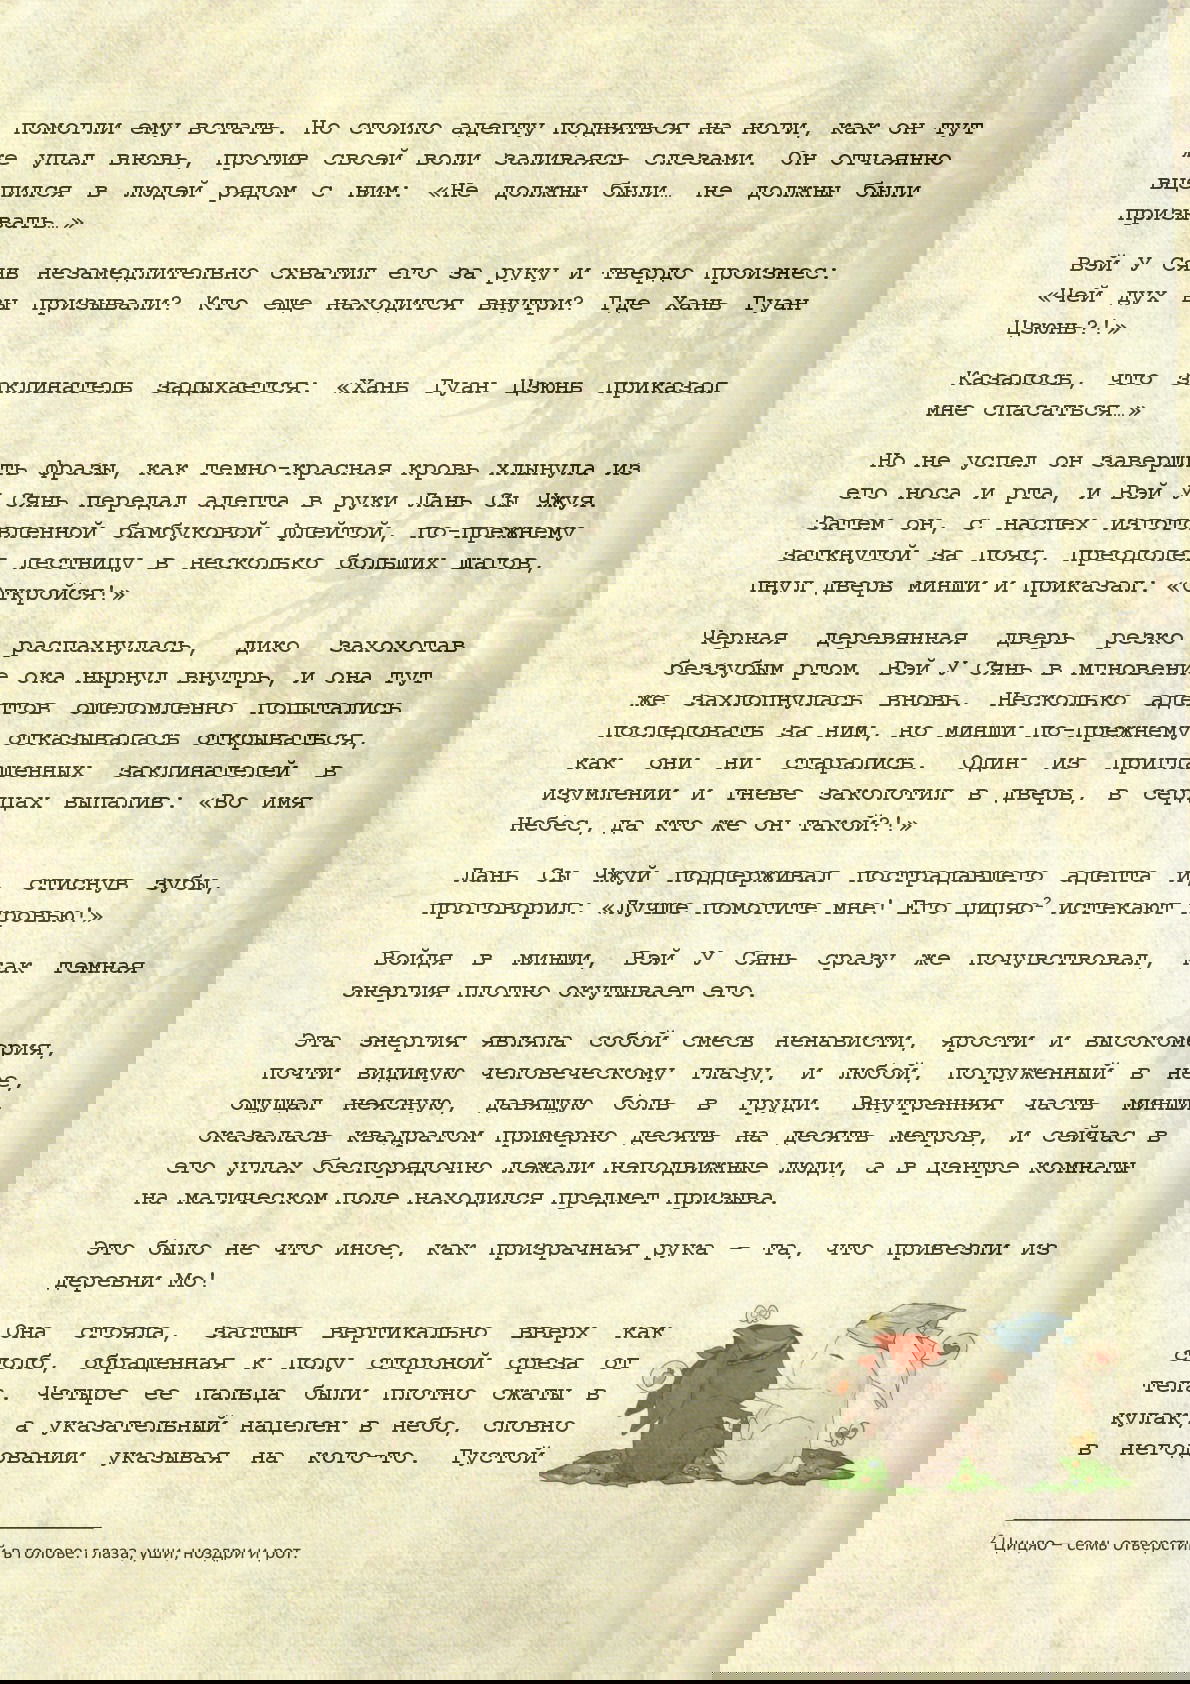 помогли ему встать. Но стоило адепту подняться на ноги, как он тут
же упал вновь, против своей воли заливаясь слезами. Он отчаянно
вцепился в людей рядом с ним: «Не должны были… не должны были
призывать…»
Вэй У Сянь незамедлительно схватил его за руку и твердо произнес:
«Чей дух вы призывали? Кто еще находится внутри? Где Хань Гуан
Цзюнь?!»
Казалось, что заклинатель задыхается: «Хань Гуан Цзюнь приказал
мне спасаться…»
Но не успел он завершить фразы, как темно-красная кровь хлынула из
его носа и рта, и Вэй У Сянь передал адепта в руки Лань Сы Чжуя.
Затем он, с наспех изготовленной бамбуковой флейтой, по-прежнему
заткнутой за пояс, преодолел лестницу в несколько больших шагов,
пнул дверь минши и приказал: «Откройся!»
Черная деревянная дверь резко распахнулась, дико захохотав
беззубым ртом. Вэй У Сянь в мгновение ока нырнул внутрь, и она тут
же захлопнулась вновь. Несколько адептов ошеломленно попытались
последовать за ним, но минши по-прежнему отказывалась открываться,
как они ни старались. Один из приглашенных заклинателей в
изумлении и гневе заколотил в дверь, в сердцах выпалив: «Во имя
Небес, да кто же он такой?!»
Лань Сы Чжуй поддерживал пострадавшего адепта и, стиснув зубы,
проговорил: «Лучше помогите мне! Его цицяо² истекают кровью!»
Войдя в минши, Вэй У Сянь сразу же почувствовал, как темная
энергия плотно окутывает его.
Эта энергия являла собой смесь ненависти, ярости и высокомерия,
почти видимую человеческому глазу, и любой, погруженный в нее,
ощущал неясную, давящую боль в груди. Внутренняя часть минши
оказалась квадратом примерно десять на десять метров, и сейчас в
его углах беспорядочно лежали неподвижные люди, а в центре комнаты
на магическом поле находился предмет призыва.
Это было не что иное, как призрачная рука – та, что привезли из
деревни Мо!
Она стояла, застыв вертикально вверх как
столб, обращенная к полу стороной среза от
тела. Четыре ее пальца были плотно сжаты в
кулак, а указательный нацелен в небо, словно
в негодовании указывая на кого-то. Густой
² Цицяо – семь отверстий в голове: глаза, уши, ноздри и рот.